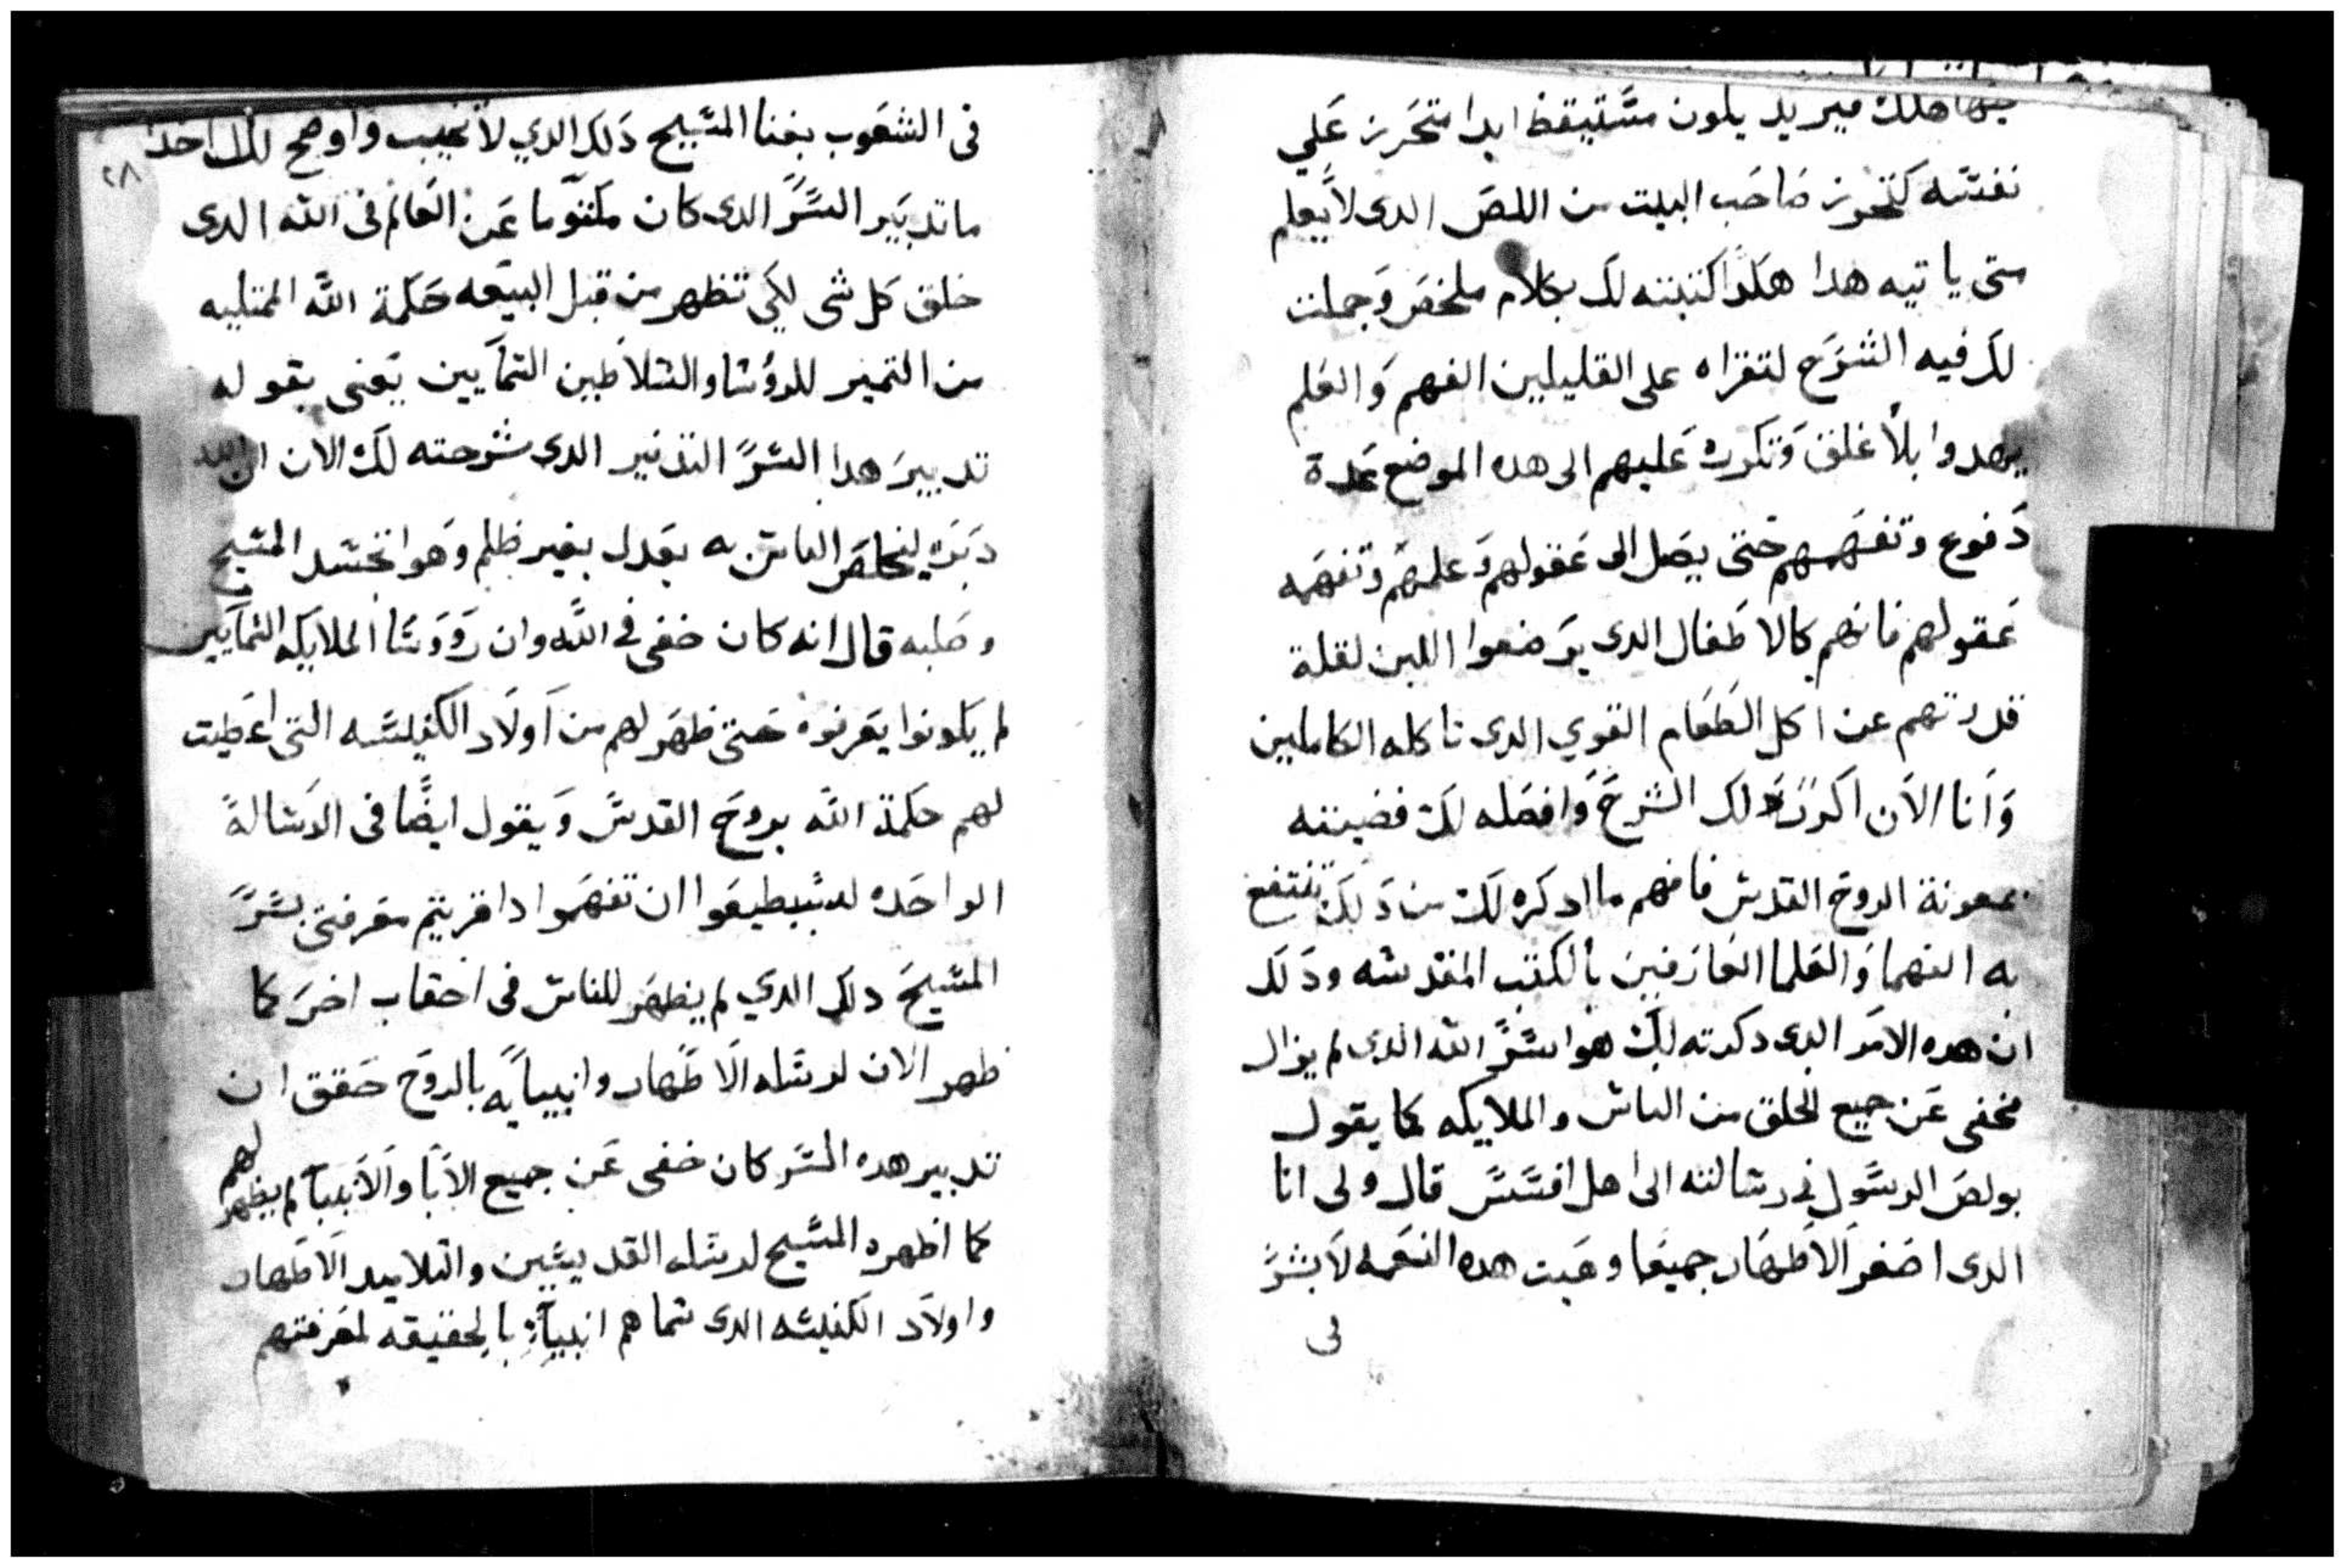 هلك فيريد يكون مستيقظ ابدا متحرز علي
نفسه كتحرز صاحب البيت من اللص الدى لا يعلم
متى ياتيه هدا هكدا كتبته لك بكلام ملخص وجملت
لك فيه الشرح لتقراه على القليلين الفهم والعلم
يهدوا بلا غلق وتكرره عليهم الى هده الموضع عدة
دفوع وتفهمهم حتى يصل الى عقولهم وعلمهم وتفهمه
عقولهم فانهم كالاطفال الدى يرضعوا اللبن لقلة
قدرتهم عن اكل الطعام القوي الدى تاكله الكاملين
وانا الان اكرر لك الشرح وافصله لك
بمعونة الروح القدس فافهم ما ادكره لك من دلك تنتفع
به الفهما والعلما العارفين بالكتب المقدسه ودلك
ان هده الامر الدى دكرته لك هوا سر الله الدى لم يزال
مخفى عن جميع الخلق من الناس والملايكه كما يقول
بولص الرسول فى رسالته الى اهل افسس قال ولى انا
الدى اصغر الاطهار جميعا وهبت هده النعمه لابشر
فى
٢٨
فى الشعوب بغنا المسيح دلك الدي لا يخيب واوضح لكل احد
ما تدبير السر الدى كان مكتوما عن العالم فى الله الدى
خلق كل شى لكي تظهر من قبل البيعه حكمة الله الممتليه
من التمير للروسا والسلاطين السمايين يعنى بقوله
تدبير هدا السر الدى شرحته لك الان ان الله
دبره ليخلص الناس به بعدل بغير ظلم وهوا تجسد المسيح
وصلبه قال انه كان خفى فى الله وان رووسا الملايكه السمايين
لم يكونوا يعرفوه حتى ظهر لهم من اولاد الكنيسه التى اعطيت
لهم حكمة الله بروح القدس ويقول ايضا فى الرسالة
الواحده لتستطيعوا ان تفهموا ادا قريتم معرفتى بسر
المسيح دلك الدي لم يظهر للناس فى احقاب اخر كما
ظهر الان لرسله الاطهار وانبيايه بالروح حقق ان
تدبير هده السر كان خفى عن جميع الابا والانبيا لم يظهر لهم
كما اظهره المسيح لرسله القديسين والتلاميد الاطهار
واولاد الكنيسه الدى سماهم انبيا بالحقيقه لمعرفتهم